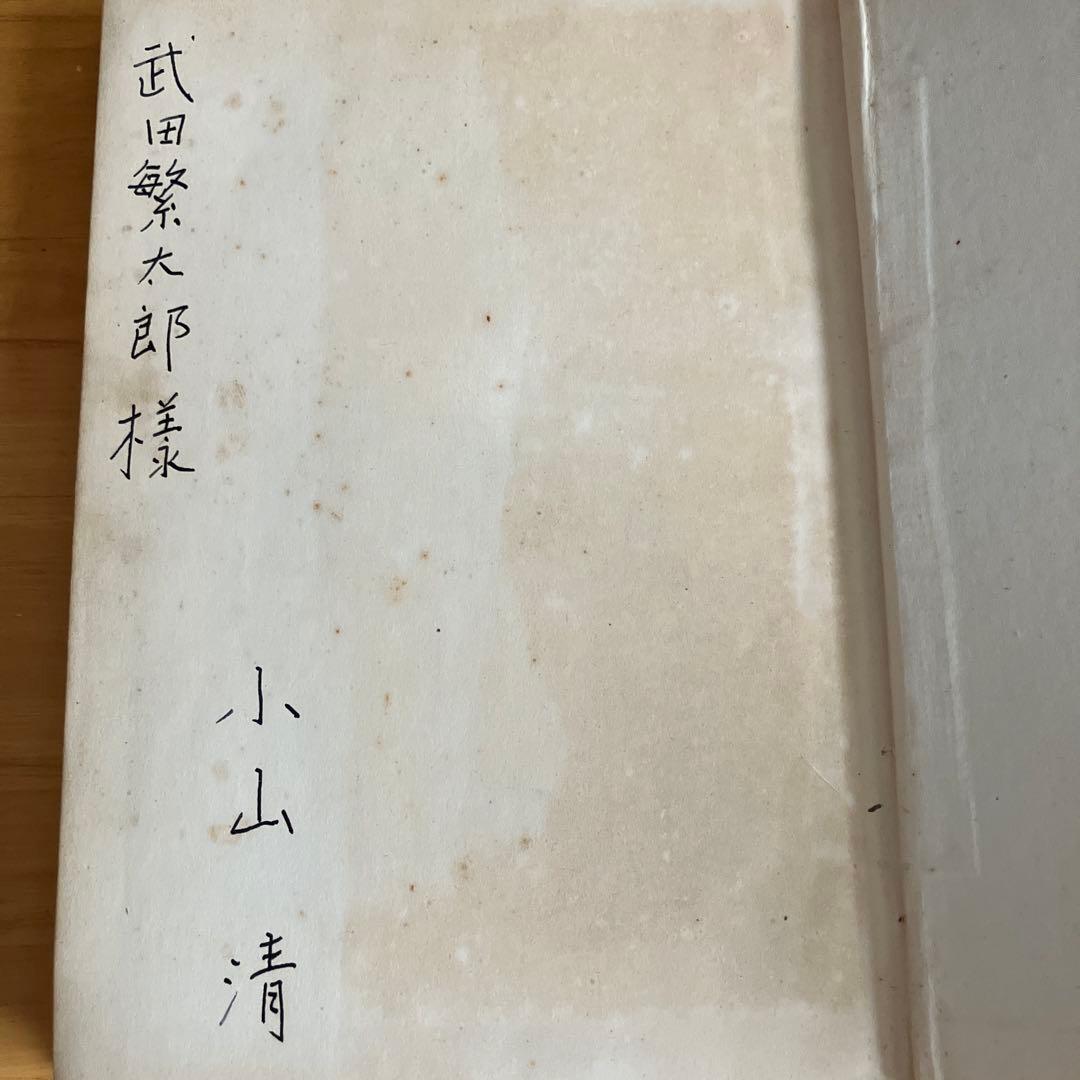 武田繁太郎様
小山清